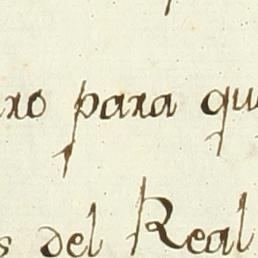 para qu
del Real